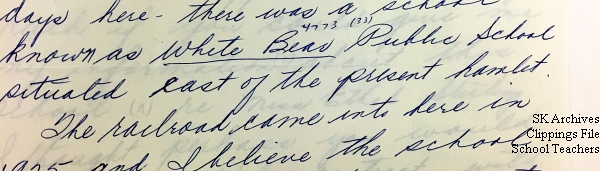 days here - there was a school
4773 (33)
known as White Bear Public School
situated east of the present hamlet.
The railroad came into here in
1925 and I believe the school
SK Archives
Clippings File
School Teachers